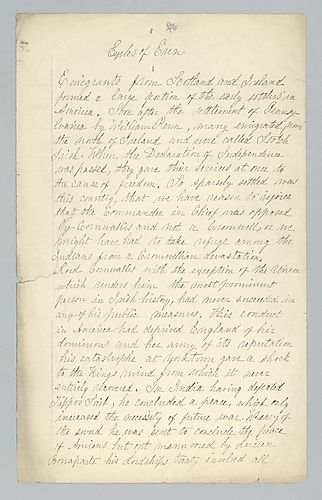 Exiles of Erin
Emigrants from Scotland and Ireland
formed a large portion of the early settlers in
America. Soon after the settlement of Pennsyl
vania by William Penn, many emigrated from
the north of Ireland and were called Scotch
Irish. When the Declaration of Independence
was passed, they gave their services at once to
the cause of freedom. So sparsely settled was
this country, that we have reason to rejoice
that the Commander in Chief was opposed
by Cornwallis and not a Cromwell, or we
might have had to take refuge among the
Indians from a Cromwellian devastation.
Lord Cornwallis with the exception of the Union
which renders him the most prominent
person in Irish history, had never succeeded in
any of his public measures. His conduct
in America had deprived England of her
dominions and her army of its reputation
his catastrophe at Yorktown gave a shock
to the Kings mind from which it never
entirely recovered. In India having defeated
Tippoo Saib, he concluded a peace, which only
increased the necessity of future war. Weary of
the sword he was sent to conclude the peace
of Amiens but out manouvred by Lucien
Bonaparte his lordships treaty involved all